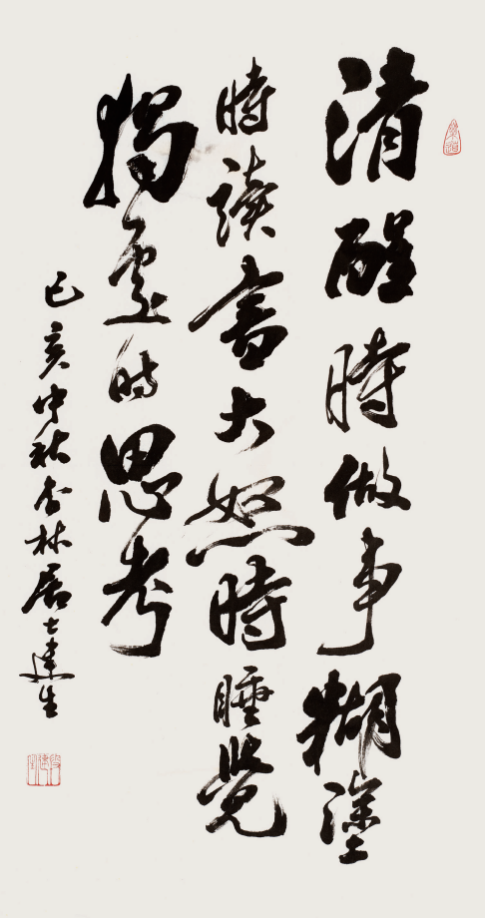 清醒時做事糊塗
時讀書大怒時睡覺
獨處時思考
己亥中秋杏林居士建生